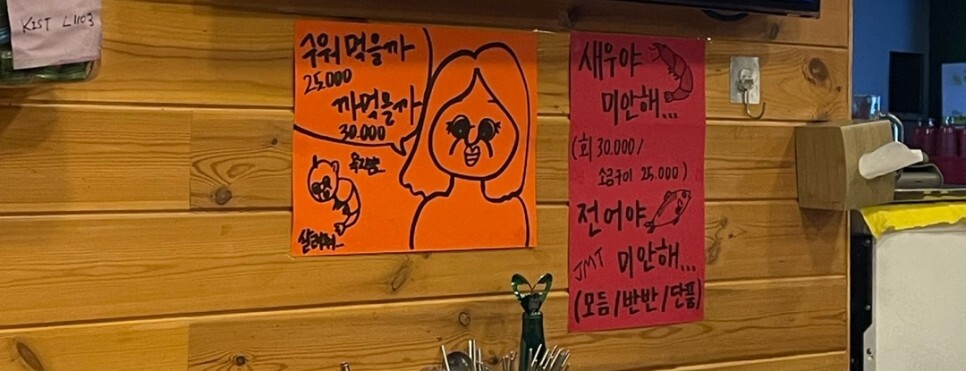 KIST L1103
수워먹을까
25.000
까먹을까
30.000
살려줘..
새우야
미안해...
(회 30.000/
소금구이 25.000)
전어야
JMT 미안해...
(모듬/반반/단품)